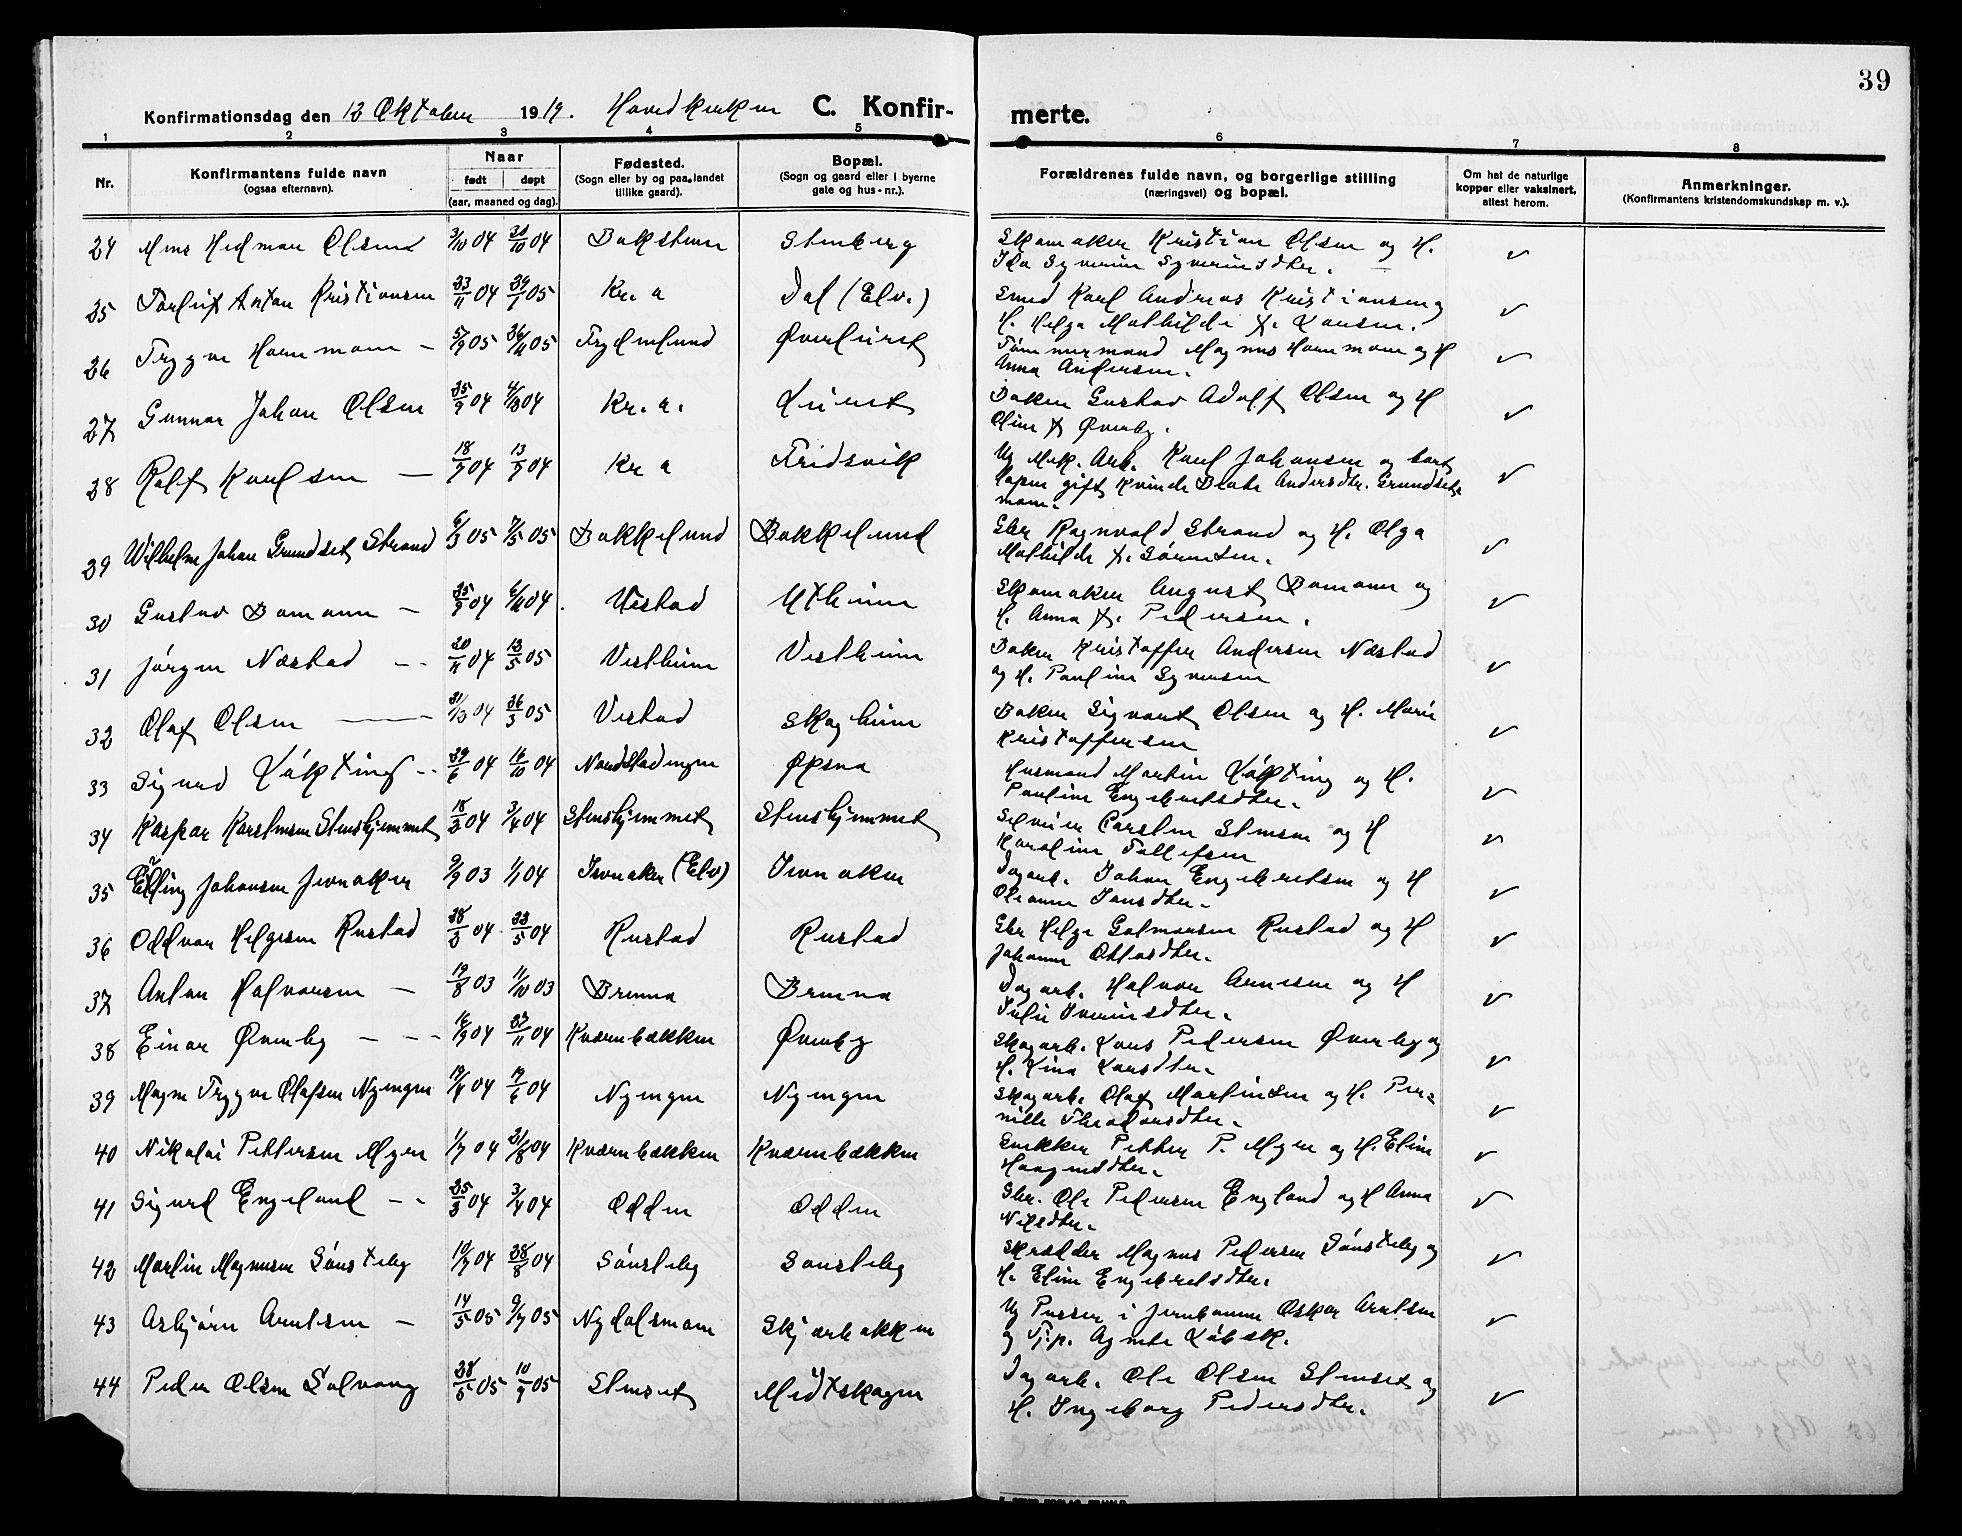 39
Konfirmationsdag den 12 Oktober 1919. Hovedkirken C. Konfirmerte.
1 2 3 4 5 6 7 8
Nr.
Konfirmantens fulde navn
(ogsaa efternavn).
Naar
født døpt
(aar, maaned og dag).
Fødested.
(Sogn eller by og paa landet
tillike gaard).
Bopæl.
(Sogn og gaard eller i byerne
gate og hus-nr.).
Forældrenes fulde navn, og borgerlige stilling
(næringsvei) og bopæl.
Om hat de naturlige
kopper eller vaksinert,
attest herom.
Anmerkninger.
(Konfirmantens kristendomskundskap m. v.).
24 Hedman Olsen 04 04 Baksteen Stenberg Skomaker Kristian Olsen og H. ✓
Ida Syverine Syverinsdtr.
25 Torleif Anton Kristiansen 23/11 04 29/1 05 Kr. a Dal (Elv.) Smed Karl Andreas Kristiansen og ✓
H. Helga Mathilde f. Larsen.
26 Trygve Hornmoen – 5/9 05 26/11 05 Frydenlund Øverkvist Tømmermand Magnus Hornmoen og H ✓
Anna Andersen.
27 Gunnar Johan Olsen 25/9 04 04 Kr. a. Baker Gustav Adolf Olsen og H ✓
Oline f. Øverby.
28 Rolf Karlsen — 18/7 04 13/9 04 Kr a Fridsvik Ug Mek. Arb. Karl Johansen og bort- ✓
gift Kvinde Beate Andersdtr. Grundset-
moen.
29 Wilhelm Johan Grundset Strand 6/3 05 7/5 05 Bakkelund Bakkelund Gbr Ragnvald Strand og H. Olga ✓
Mathilde f. Sørensen.
30 Gustav Bomann – 25/9 04 6/11 04. Vestad Utheim Skomaker August Bomann og ✓
H. Anna f. Pedersen.
31 Jørgen Næstad -- 20/11 04 05 Vestheim Vestheim Baker Kristoffer Andersen Næstad ✓
og H. Pauline Syversen
32 Olaf Olsen — 04 26/3 05 Vestad Skogheim Baker Sigvart Olsen og H. Marie ✓
Kristoffersen
33 Sigurd Løkting -- 29/6 04 16/10 04 Nordstadengen Øksna Husmand Martin Løkting og H. ✓
Pauline Engebretsdtr.
34 Kaspar Karstensen Stenshjemmet 18/2 04 3/4 04 Stenshjemmet Stenshjemmet Selveier Carsten Stensen og H ✓
Karoline Tollefsen
35 Elling Johansen Jevnaker 9/9 03 1/1 04 Jevnaker (Elv) Jevnaker Dagarb. Johan Engebretsen og H ✓
Oleanne Jensdtr.
36 Oddvar Helgesen Rustad 28/3 04 23/5 04 Rustad Rustad Gbr Helge Galmansen Rustad og H ✓
Johanne Ottosdtr.
37 Anton Halvorsen – 19/8 03 11/10 03 Brenna Brenna Dagarb. Halvor Arnesen og H ✓
Julie Iversdtr.
38 Einar Øverby - - - 16/9 04 27/11 04 Kværnbækken Øverby Skogarb. Lars Pedersen Øverby og ✓
H. Lina Larsdtr.
39 Magne Trygve Olafsen Nyengen 19/4 04 19/6 04 Nyengen Nyengen Skogarb. Olaf Martinsen og H. Per- ✓
nille Theodorsdtr.
40 Nikolai Pettersen Myre 1/7 04 21/8 04 Kværnbækken Kværnbækken Snekker Petter P. Myre og H. Eline ✓
Haagensdtr.
41 Sigurd Engeland -- 25/3 04 3/4 04 Odden Odden Gbr. Ole Pedersen England og H Anna ✓
Nilsdtr.
42 Martin Magnusen Sønsteby 10/7 04 28/8 04 Sønsteby Sønsteby Skrædder Magnus Pedersen Sønsteby og ✓
H. Eline Engebretsdtr.
43 Asbjørn Arntsen – 14/5 05 9/7 05 Nydalsmoen Skjærbækken Ug Pusser i Jernbanen Oskar Arntsen ✓
og Tjp. Agnete Løbsk.
44 Peder Olsen Solvang 28/5 05 10/9 05 Stenset Midtskogen Dagarb. Ole Olsen Stenset og ✓
H. Ingeborg Pedersdtr.